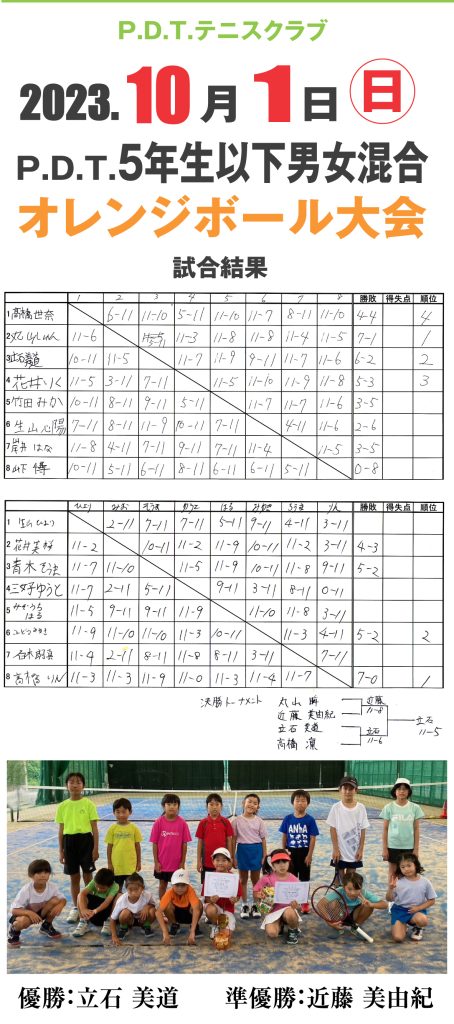 P.D.T.テニスクラブ
2023.10月1日㊐
P.D.T.5年生以下男女混合
オレンジボール大会
試合結果
1 2 3 4 5 6 7 8 勝敗 得失点 順位
1 高橋 世奈 6-11 11-10 5-11 11-10 11-7 8-11 11-10 4-4 4
2 11-6 11-3 11-8 11-8 11-4 11-5 7-1 1
3 10-11 11-5 11-7 11-9 9-11 11-7 11-6 6-2 2
4 花井 りく 11-5 3-11 7-11 11-5 11-10 11-9 11-8 5-3 3
5 竹田 みか 10-11 8-11 9-11 5-11 11-7 7-11 11-6 3-5
6 生山 心陽 7-11 8-11 11-9 10-11 7-11 4-11 11-6 2-6
7 岸井 はな 11-8 4-11 7-11 9-11 7-11 11-4 11-5 3-5
8 山下 博 10-11 5-11 6-11 8-11 6-11 6-11 5-11 0-8
ひより みお そうま ゆうと はる みさき りん 勝敗 得失点 順位
1 生山 ひより 2-11 7-11 7-11 5-11 9-11 4-11 3-11
2 花井 11-2 10-11 11-2 11-9 10-11 11-2 3-11 4-3
3 青木 そうま 11-7 11-10 11-5 11-9 10-11 11-8 9-11 5-2
4 三好 ゆうと 11-7 2-11 5-11 9-11 3-11 8-11 0-11
5 はる 11-5 9-11 9-11 11-9 11-10 11-8 3-11
6 11-9 11-10 11-10 11-3 10-11 11-3 4-11 5-2 2
7 11-4 2-11 8-11 11-8 8-11 3-11 7-11
8 高橋 りん 11-3 11-3 11-9 11-0 11-3 11-4 11-7 7-0 1
決勝トーナメント
丸山 瞬
近藤 美由紀
立石 美道
高橋 凛
近藤
11-8
立石
11-6
立石
11-5
優勝:立石 美道 準優勝:近藤 美由紀